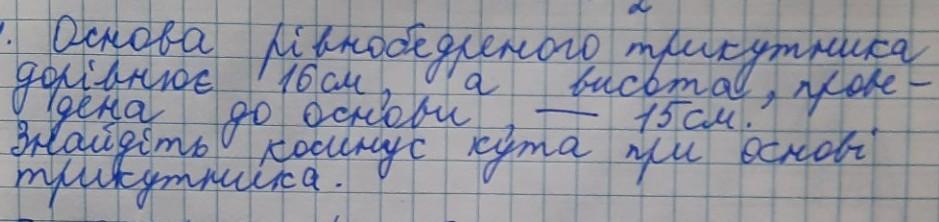 . Основа рівнобедреного трикутника
дорівнює 16см, а висота, прове-
дена до основи, — 15см.
Знайдіть косинус кута при основі
трикутника.